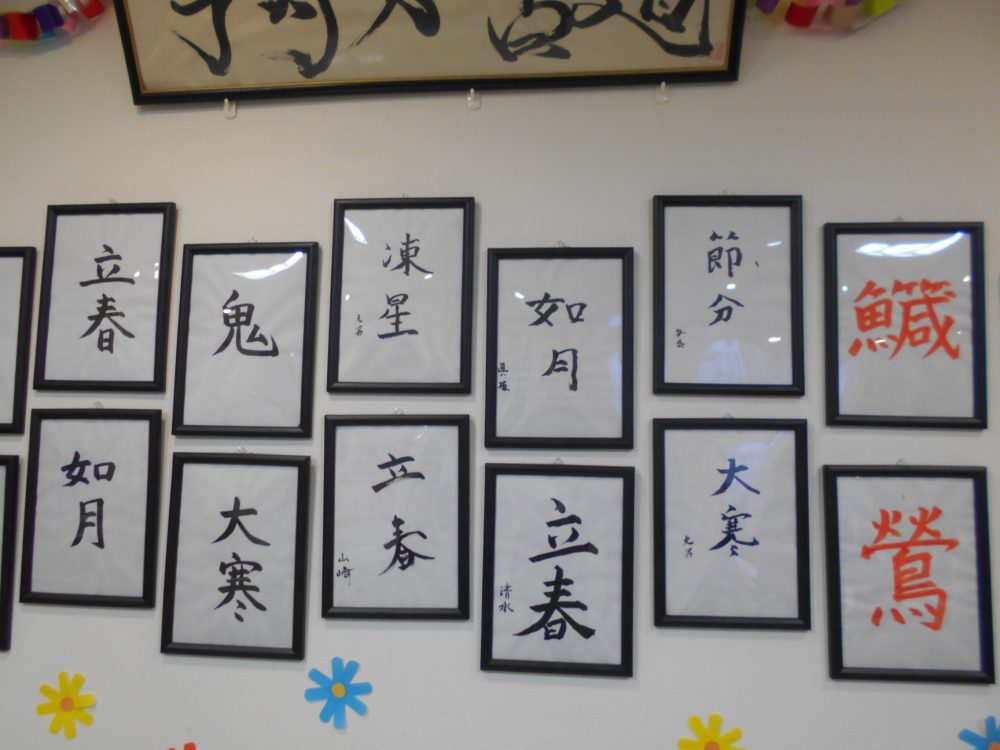 立春
鬼
凍星
如月
節分
鱵
如月
大寒
立春
山崎
立春
清水
大寒
鶯